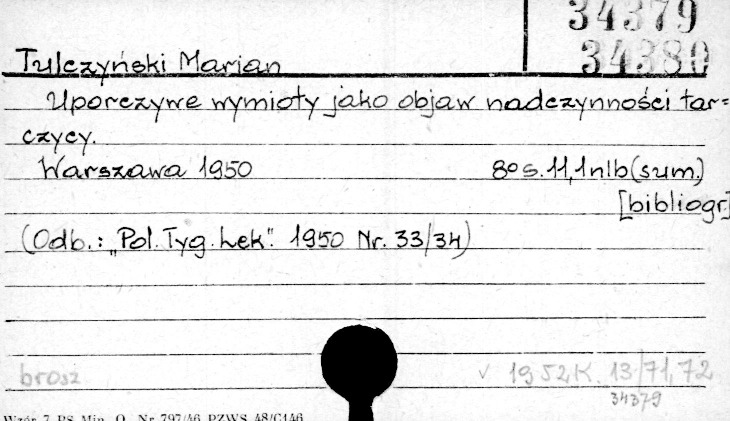 34379
34380
Tulczyński Marian
Uporczywe wymioty jako objaw nadczynności tar=
czycy.
Warszawa 1950 8º s. 11, 1 nlb (sum.)
[bibliogr]
(Odb.: „Pol. Tyg. Lek". 1950 Nr. 33/34)
brosz v 1952 K. 13/71, 72
34379
Wzór 7 PS Min. O. Nr 797/46 PZWS 48/C146